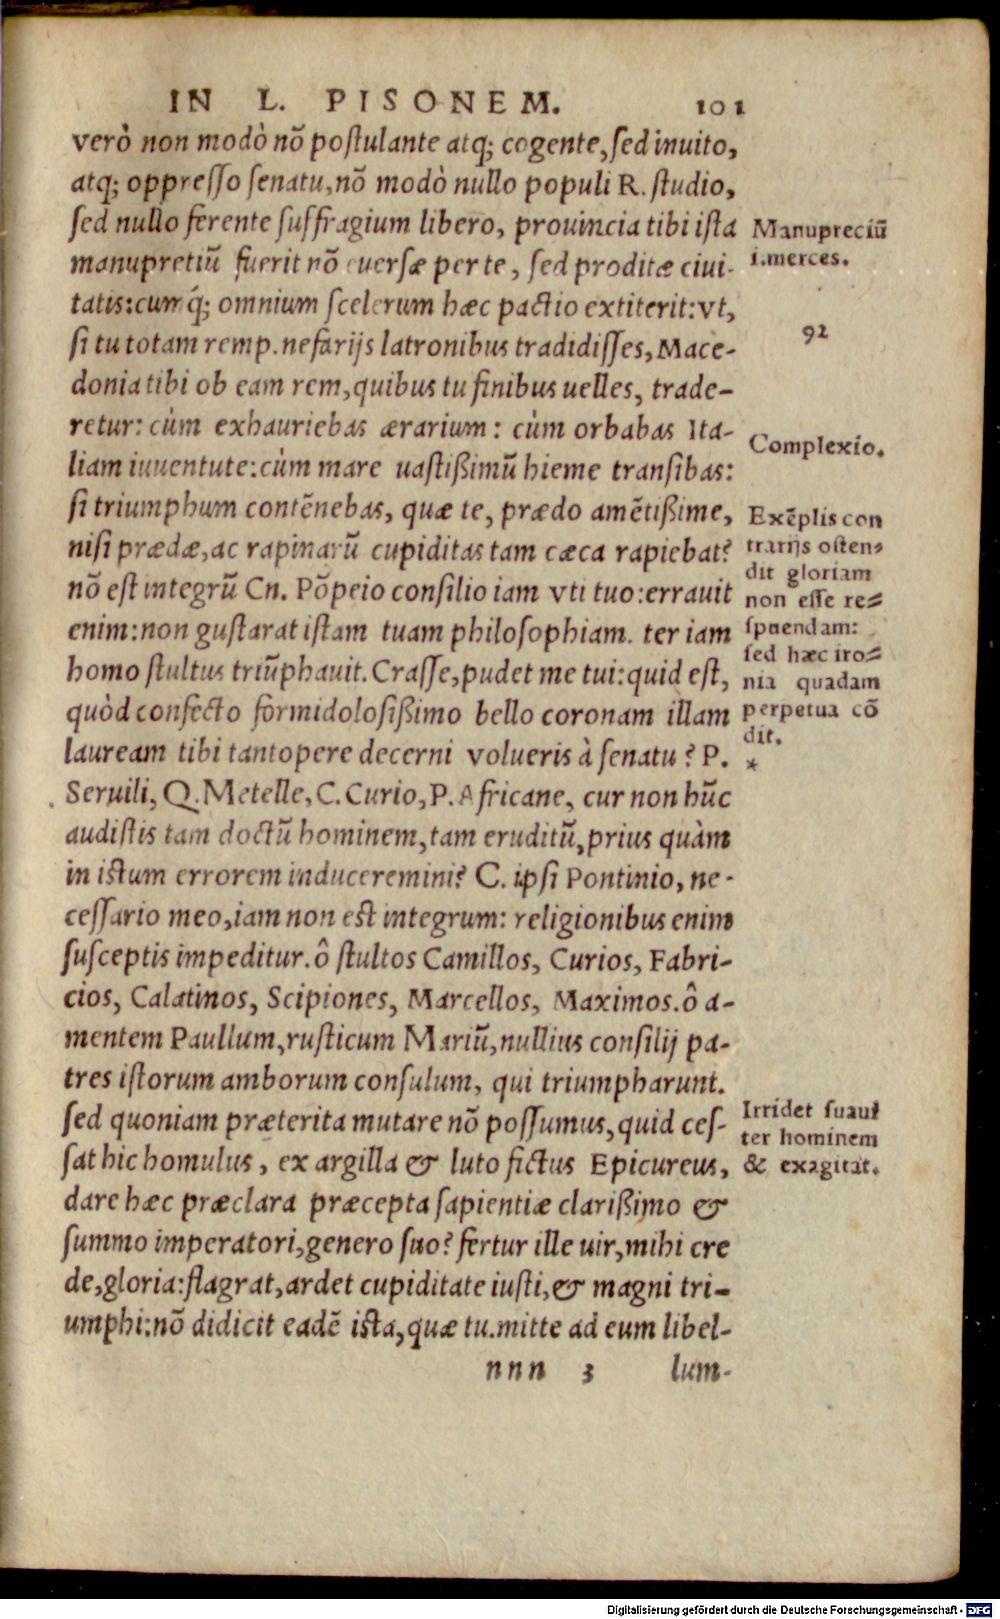 IN L. PISONEM. 101
verò non modò nõ poſtulante atq; cogente, ſed inuito,
atq; oppreſſo ſenatu, nõ modò nullo populi R. ſtudio,
ſed nullo ferente ſuffragium libero, prouincia tibi iſta
manupretiũ fuerit nõ euerſæ per te, ſed proditæ ciui-
tatis: cum q́; omnium ſcelerum hæc pactio extiterit: vt,
ſi tu totam remp. nefarijs latronibus tradidiſſes, Mace-
donia tibi ob eam rem, quibus tu finibus uelles, trade-
retur: cùm exhauriebas ærarium: cùm orbabas Ita-
liam iuuentute: cùm mare uaſtißimũ hieme tranſibas:
ſi triumphum contẽnebas, quæ te, prædo amẽtißime,
niſi prædæ, ac rapinarũ cupiditas tam cæca rapiebat?
nõ eſt integrũ Cn. Põpeio conſilio iam vti tuo: errauit
enim: non guſtarat iſtam tuam philoſophiam. ter iam
homo ſtultus triũphauit. Craſſe, pudet me tui: quid eſt,
quòd confecto formidoloſißimo bello coronam illam
lauream tibi tantopere decerni volueris à ſenatu? P.
Seruili, Q. Metelle, C. Curio, P. Africane, cur non hũc
audiſtis tam doctũ hominem, tam eruditũ, prius quàm
in iſtum errorem induceremini? C. ipſi Pontinio, ne-
ceſſario meo, iam non eſt integrum: religionibus enim
ſuſceptis impeditur. ô ſtultos Camillos, Curios, Fabri-
cios, Calatinos, Scipiones, Marcellos, Maximos. ô a-
mentem Paullum, ruſticum Mariũ, nullius conſilij pa-
tres iſtorum amborum conſulum, qui triumpharunt.
ſed quoniam præterita mutare nõ poſſumus, quid ceſ-
ſat hic homulus, ex argilla & luto fictus Epicureus,
dare hæc præclara præcepta ſapientiæ clarißimo &
ſummo imperatori, genero ſuo? fertur ille uir, mihi cre
de, gloria: flagrat, ardet cupiditate iuſti, & magni tri-
umphi: nõ didicit eadẽ iſta, quæ tu. mitte ad eum libel-
nnn 3 lum-
Manupreciũ
i. merces.
92
Complexio.
Exẽplis con
trarijs oſten-
dit gloriam
non eſſe re-
ſpuendam:
ſed hæc iro-
nia quadam
perpetua cõ
dit.
*
Irridet ſuaui
ter hominem
& exagitat.
Digitalisierung gefördert durch die Deutsche Forschungsgemeinschaft - DFG